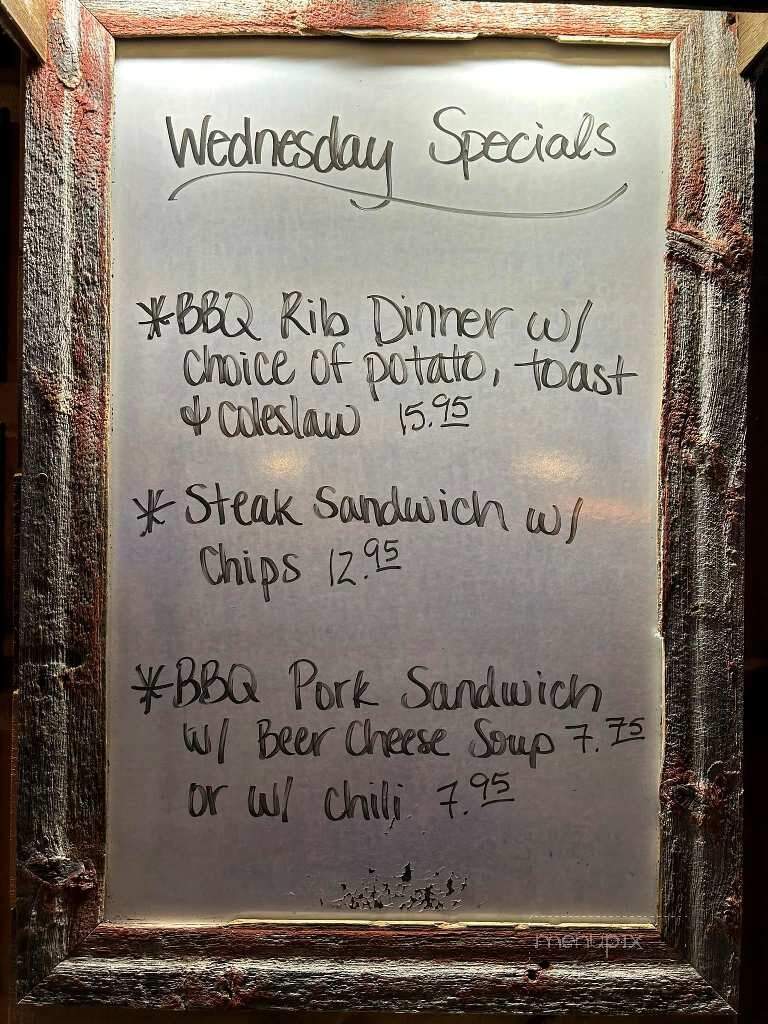 Wednesday Specials
*BBQ Rib Dinner w/
choice of potato, toast
& coleslaw 15.95
* Steak Sandwich w/
Chips 12.95
*BBQ Pork Sandwich
w/ Beer Cheese Soup 7.75
or w/ chili 7.95
menupix